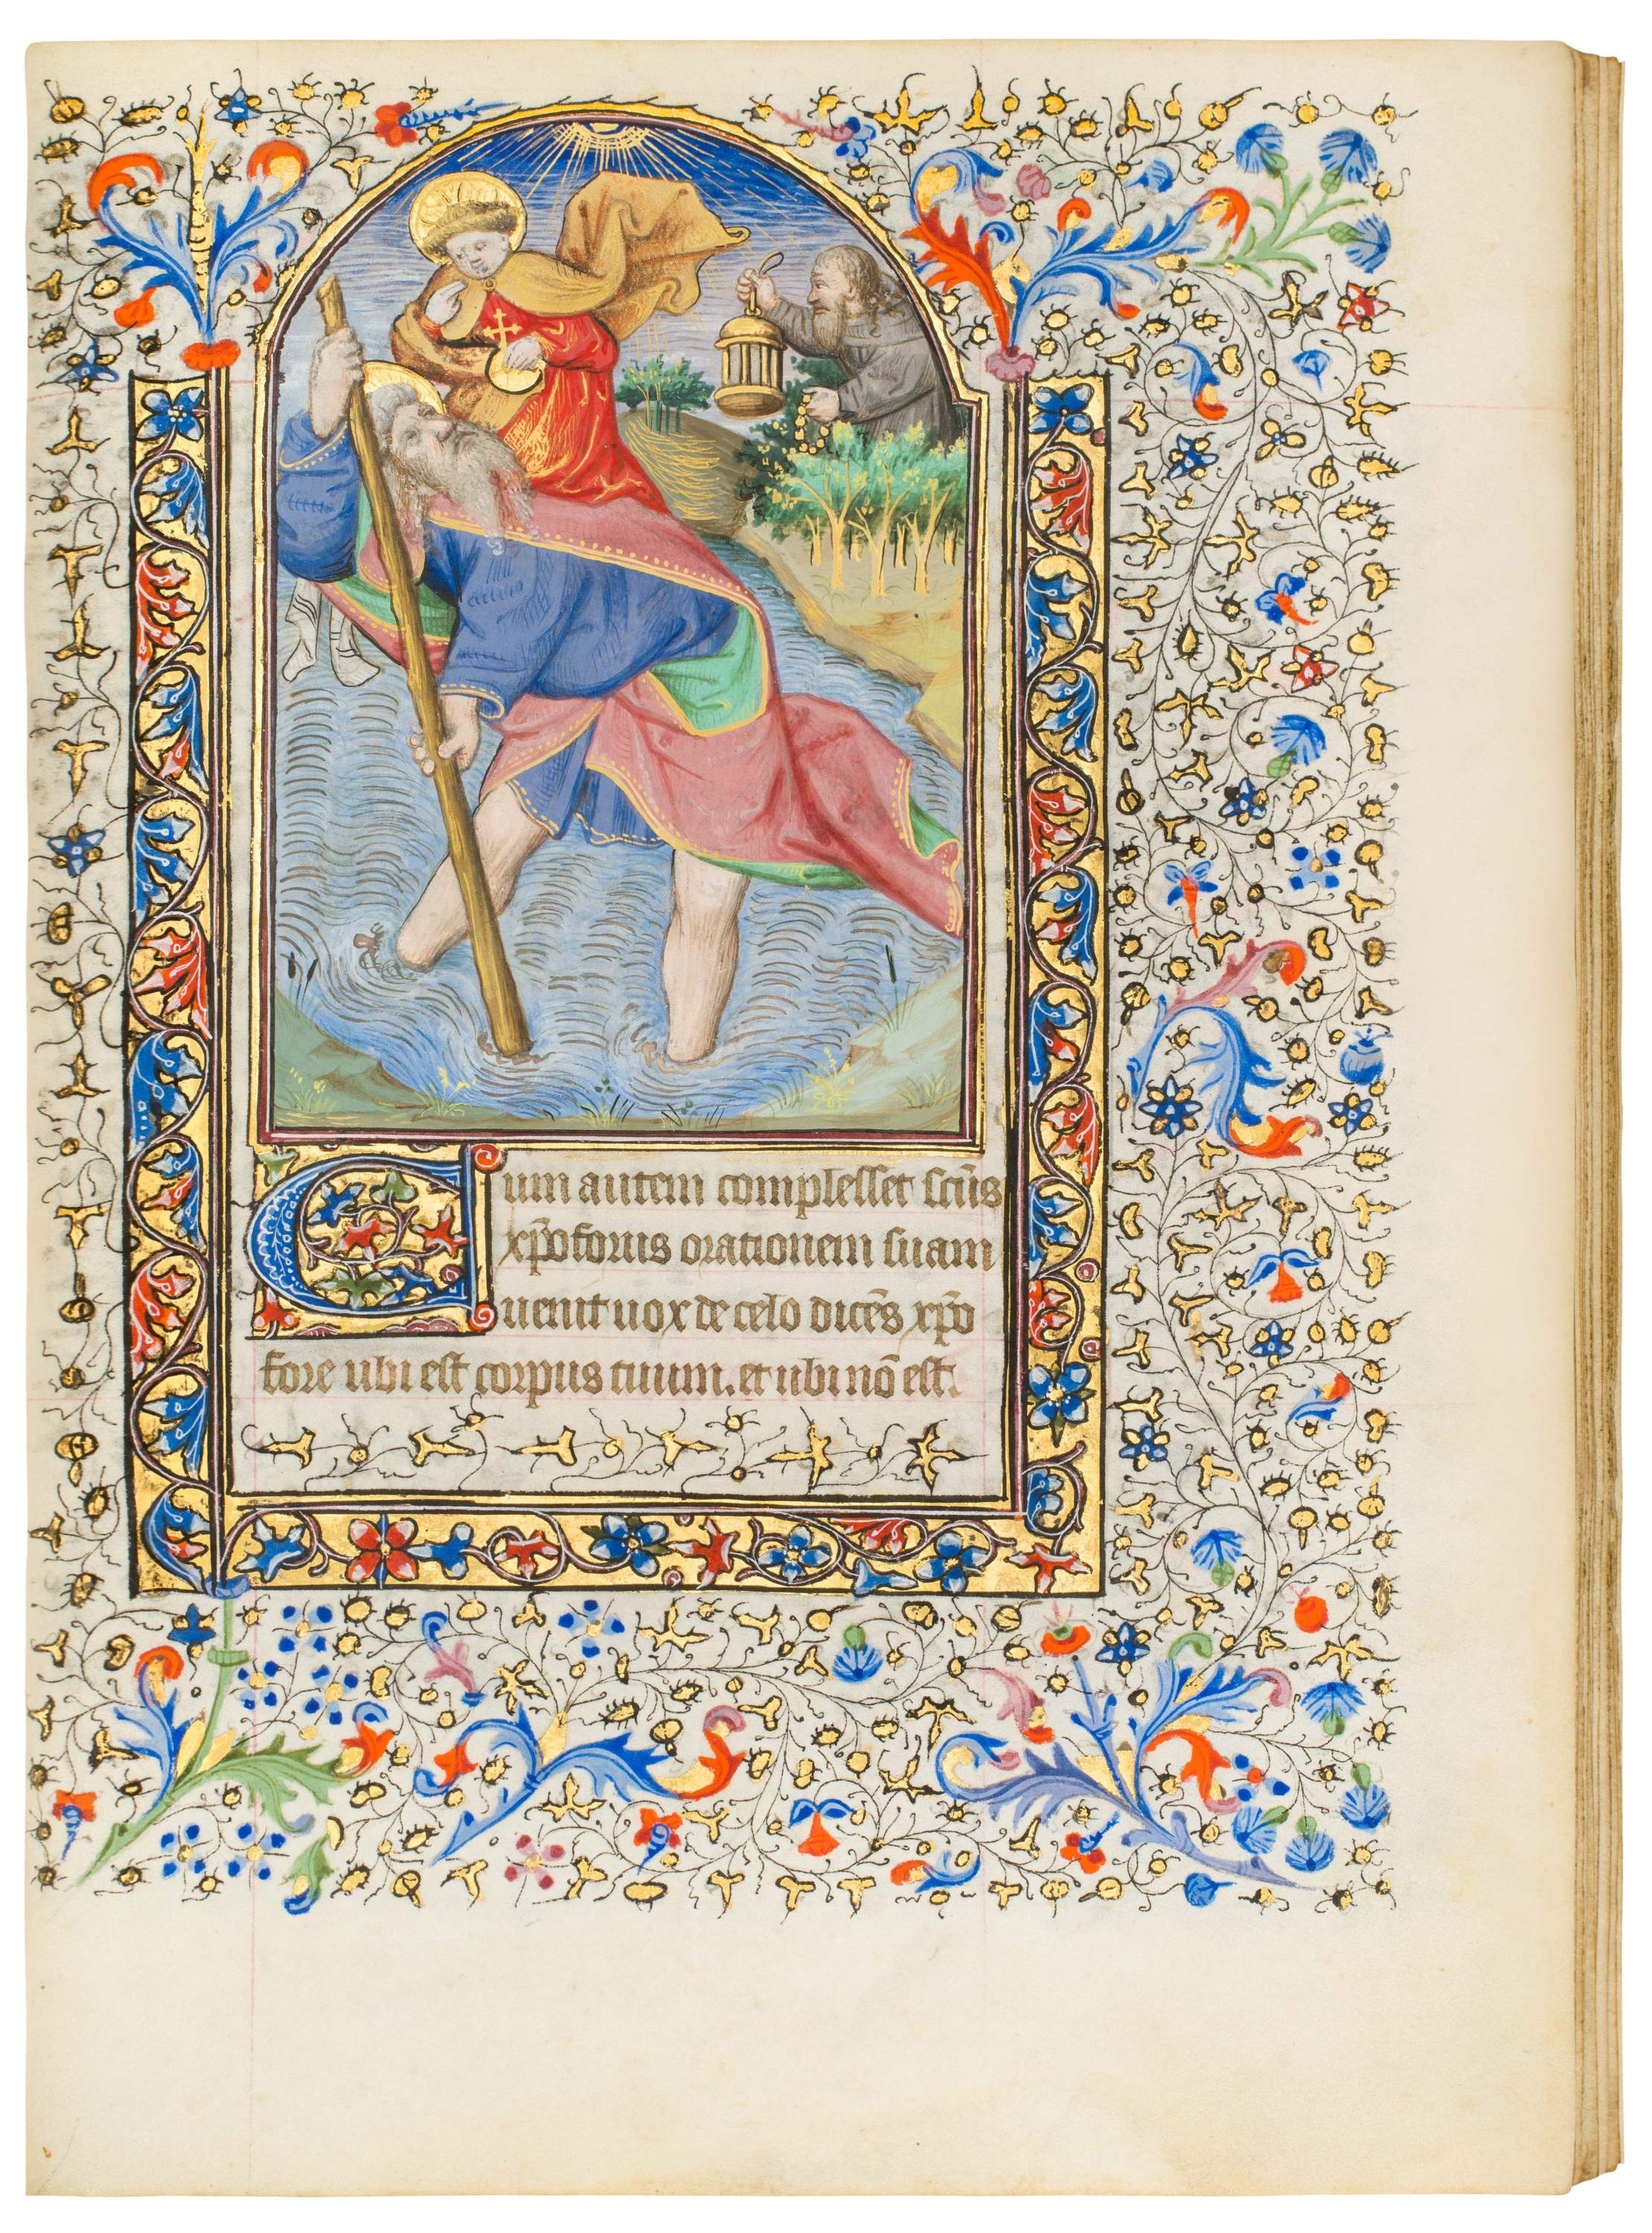 Cum autem complesset scūs
xp̄oforus orationem suam
uenit uox de celo dicēs xp̄o
fore ubi est corpus tuum. et ubi nō est.